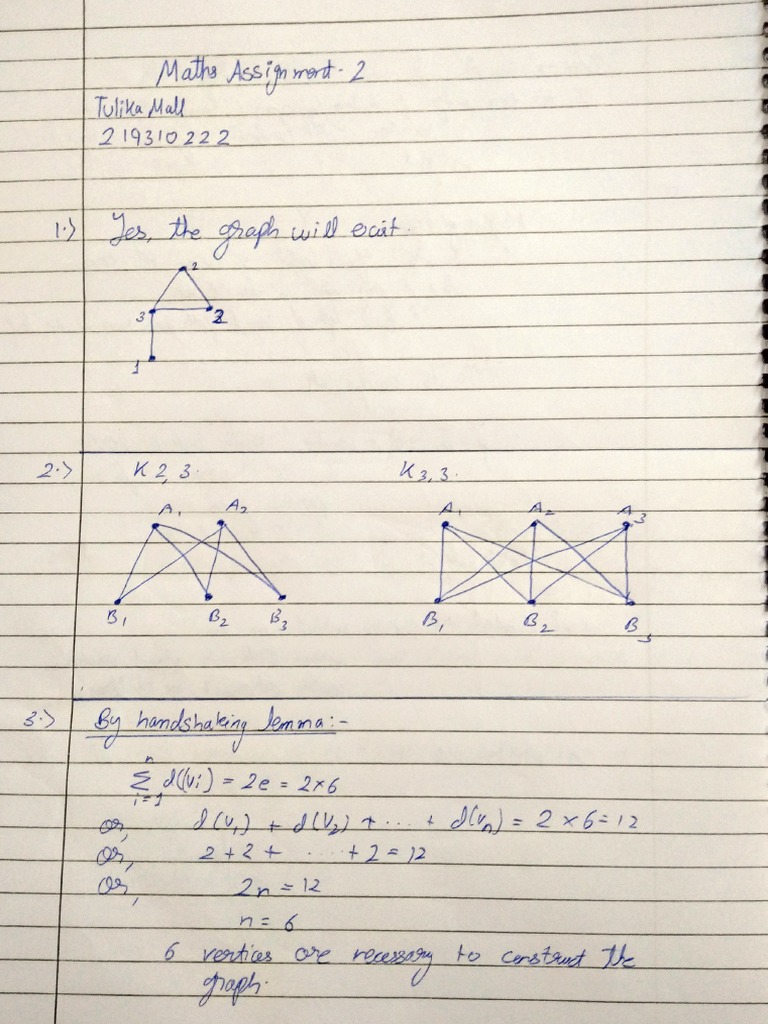 Maths Assignment-2
Tulika Mall
219310222
1.> Yes, the graph will exist.
2
3 2
1
2.> K 2, 3. K3,3.
A1 A2 A1 A2 A3
B1 B2 B3 B1 B2 B3
3.> By handshaking lemma:-
n
∑ d(vi) = 2e = 2×6
i=1
or, d(v1) + d(v2) + .... + d(vn) = 2 × 6 = 12
or, 2 + 2 + .... + 2 = 12
or, 2n = 12
n = 6
6 vertices are necessary to construct the
graph.